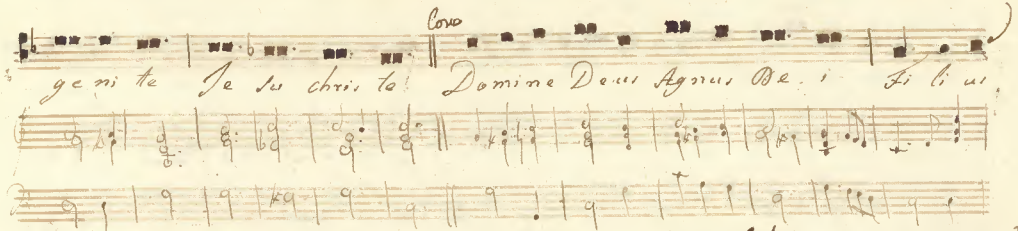 Coro
ge ni te Je su chris te Domine Deus Agnus De i Fi li us